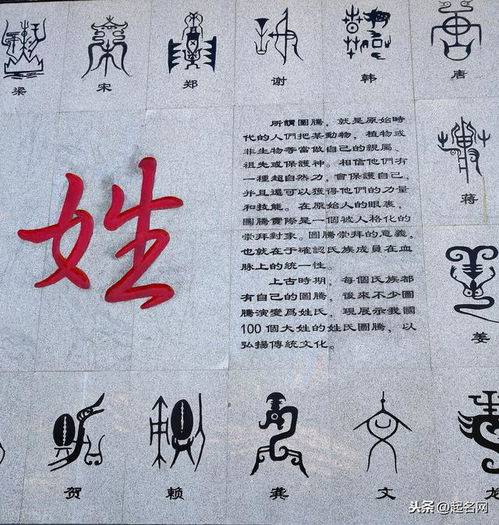 梁 宋 郑 谢 韩 唐
蒋
姜
姓
所謂圖騰，就是原始時
代的人們把某動物，植物或
非生物等當做自己的親屬、
祖先或保護神。相信他們有
一種超自然力，會保護自己，
并且還可以獲得他們的力量
和技能。在原始人的眼裏，
圖騰實際是一個被人格化的
崇拜對象。圖騰崇拜的意義，
也就在于確認氏族成員在血
脉上的統一性。
上古時期，每個氏族都
有自己的圖騰，後來不少圖
騰演變爲姓氏，現展示我國
100個大姓的姓氏圖騰，以
弘揚傳統文化。
贺 赖 龚 文
头条 @起名网